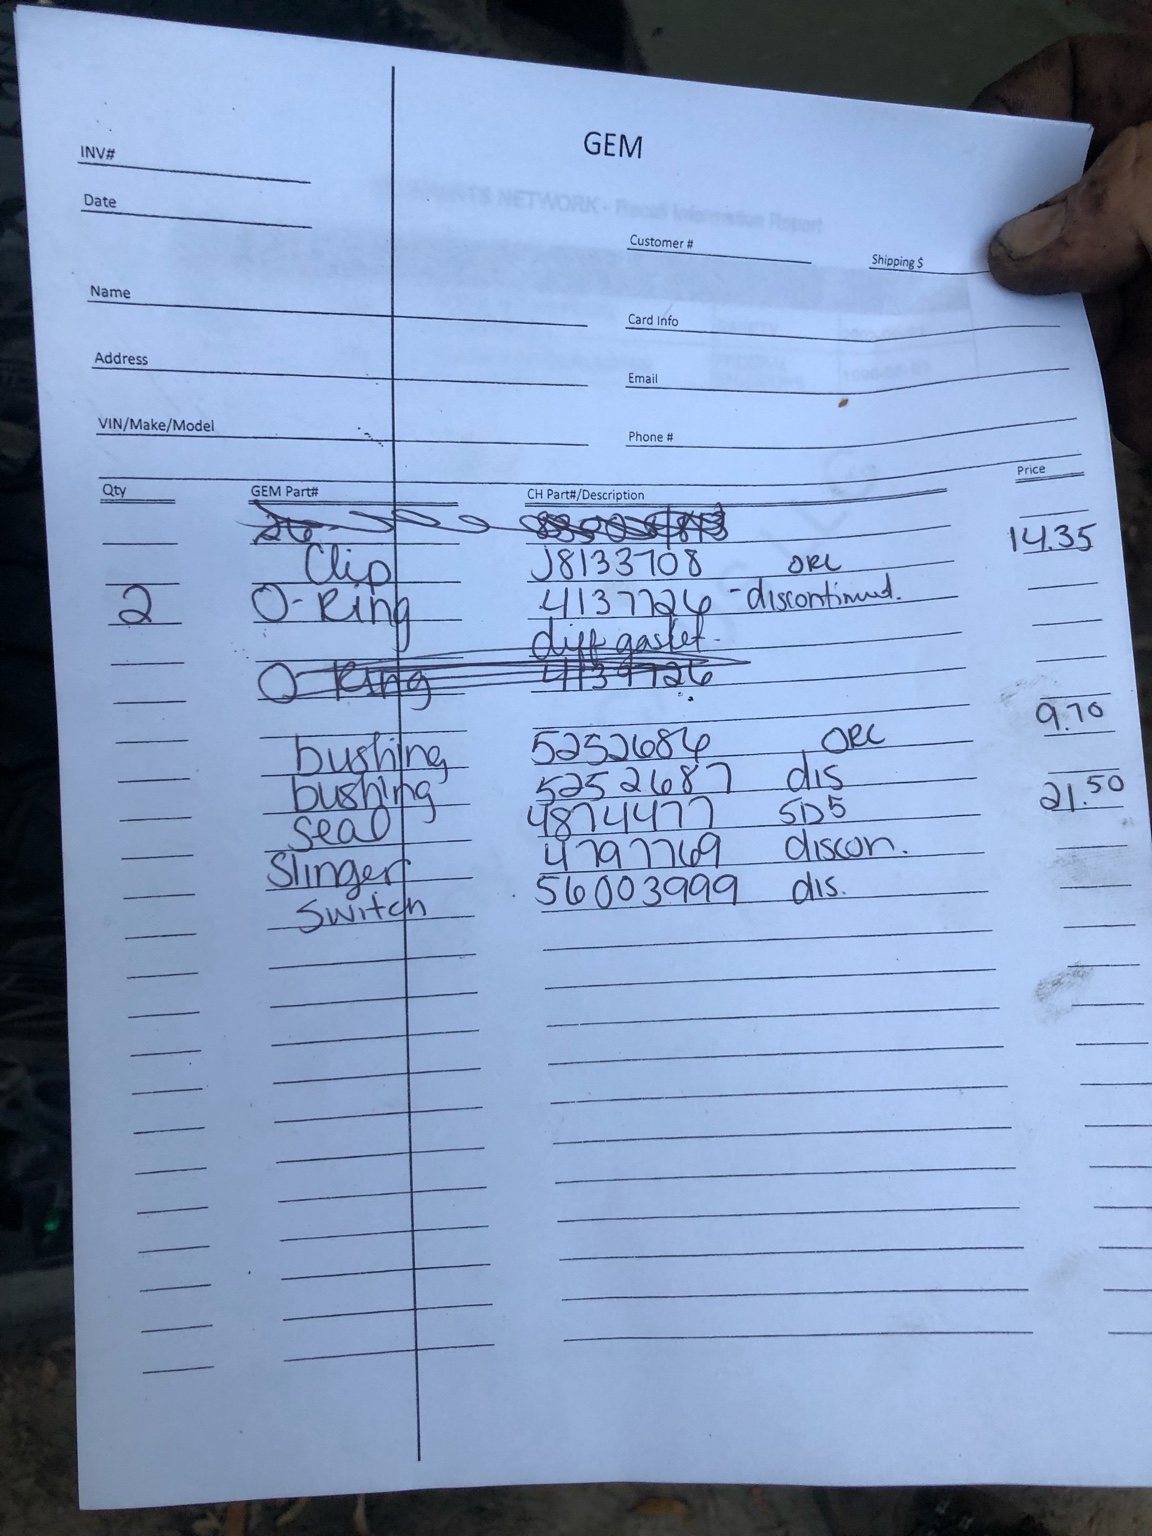 GEM
INV#
Date
Customer #
Shipping $
Name
Card Info
Address
Email
VIN/Make/Model
Phone #
Qty GEM Part# CH Part#/Description Price
Clip J8133708 ORC 14.35
2 O-Ring 4137726 - discontinued.
diff gasket.
O-Ring 4137726
bushing 5252686 ORC 9.70
bushing 5252687 dis
seal 4874477 SD5 21.50
Slinger 4797769 discon.
Switch 56003999 dis.